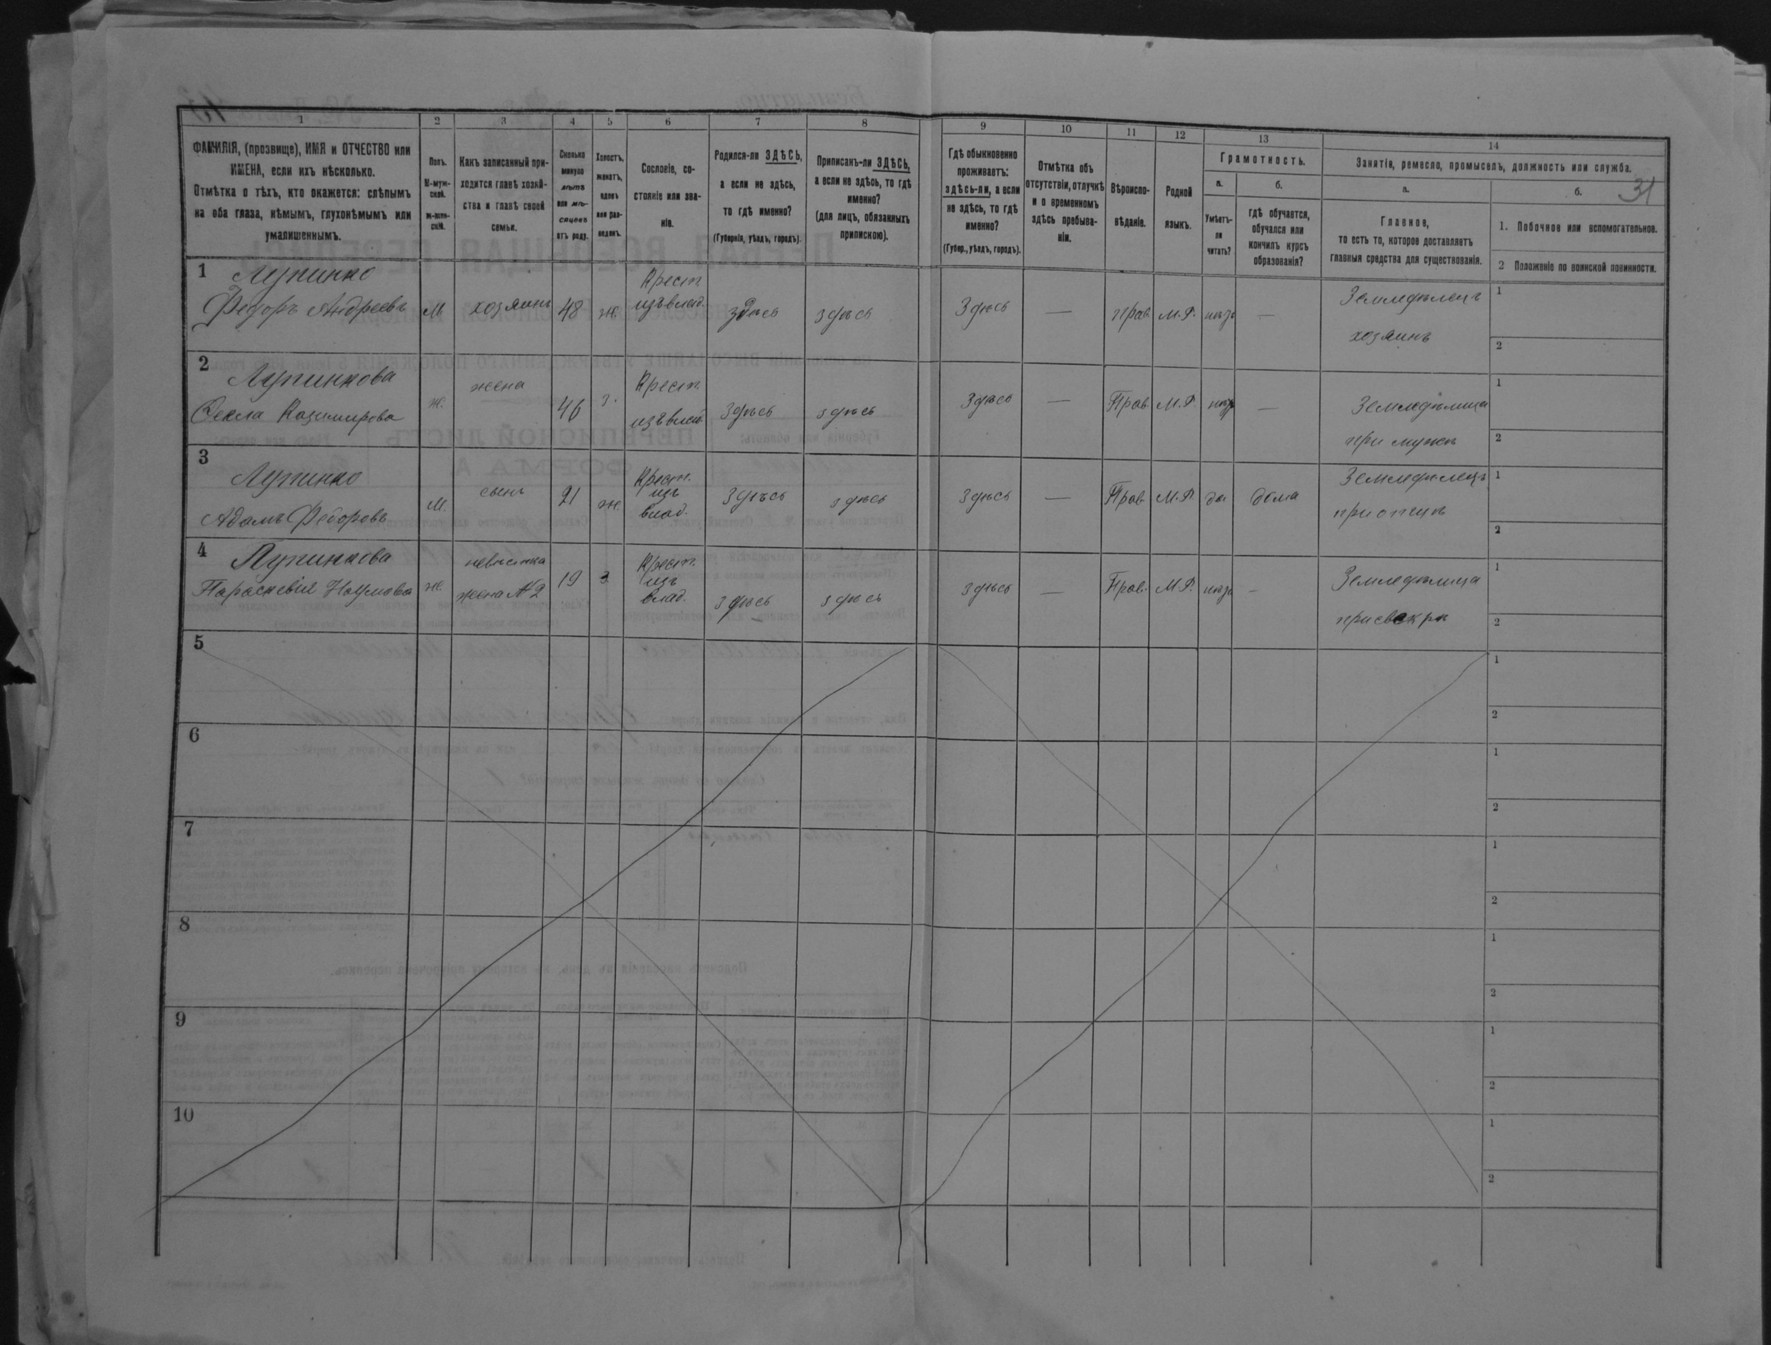 1 2 3 4 5 6 7 8 9 10 11 12 13 14
ФАМИЛІЯ, (прозвище), ИМЯ и ОТЧЕСТВО или
ИМЕНА, если ихъ нѣсколько.
Отмѣтка о тѣхъ, кто окажется: слѣпымъ
на оба глаза, нѣмымъ, глухонѣмымъ или
умалишеннымъ.
Полъ.
М-муж-
ской.
Ж-жен-
скій.
Какъ записанный при-
ходится главѣ хозяй-
ства и главѣ своей
семьи.
Сколько
минуло
лѣтъ
или мѣ-
сяцевъ
отъ роду.
Холостъ,
женатъ,
вдовъ
или раз-
веденъ.
Сословіе, со-
стояніе или зва-
ніе.
Родился-ли ЗДѢСЬ,
а если не здѣсь,
то гдѣ именно?
(Губернія, уѣздъ, городъ).
Приписанъ-ли ЗДѢСЬ,
а если не здѣсь, то гдѣ
именно?
(для лицъ, обязанныхъ
припискою).
Гдѣ обыкновенно
проживаетъ:
здѣсь-ли, а если
не здѣсь, то гдѣ
именно?
(Губер., уѣздъ, городъ).
Отмѣтка объ
отсутствіи, отлучкѣ
и о временномъ
здѣсь пребыва-
ніи.
Вѣроиспо-
вѣданіе.
Родной
языкъ.
Грамотность.
а.
Умѣетъ-
ли
читать?
б.
гдѣ обучается,
обучался или
кончилъ курсъ
образованія?
Занятія, ремесло, промыселъ, должность или служба.
а.
Главное,
то есть то, которое доставляетъ
главныя средства для существованія.
б.
31
1. Побочное или вспомогательное.
2 Положеніе по воинской повинности.
1 Лупинко
Федоръ Андреевъ М. хозяинъ 48 ж. Крест. изъ влад. здѣсь здѣсь Здѣсь — Прав. М.Р. нѣтъ — Земледѣлецъ
хозяинъ
1
2
2 Лупинкова
Фекла Казимирова ж. жена 46 з. Крест. изъ влад. Здѣсь здѣсь Здѣсь — Прав. М.Р. нѣтъ — Земледѣлица
при мужѣ
1
2
3 Лупинко
Адамъ Федоровъ М. сынъ 21 ж. Крест. изъ влад. Здѣсь здѣсь Здѣсь — Прав. М.Р. да дома Земледѣлецъ
при отцѣ
1
2
4 Лупинкова
Параскевія Наумова ж. невѣстка
жена № 2 19 з Крест. изъ влад. здѣсь здѣсь здѣсь — Прав. М.Р. нѣтъ - Земледѣлица
при свекрѣ
1
2
5
1
2
6
1
2
7
1
2
8
1
2
9
1
2
10
1
2